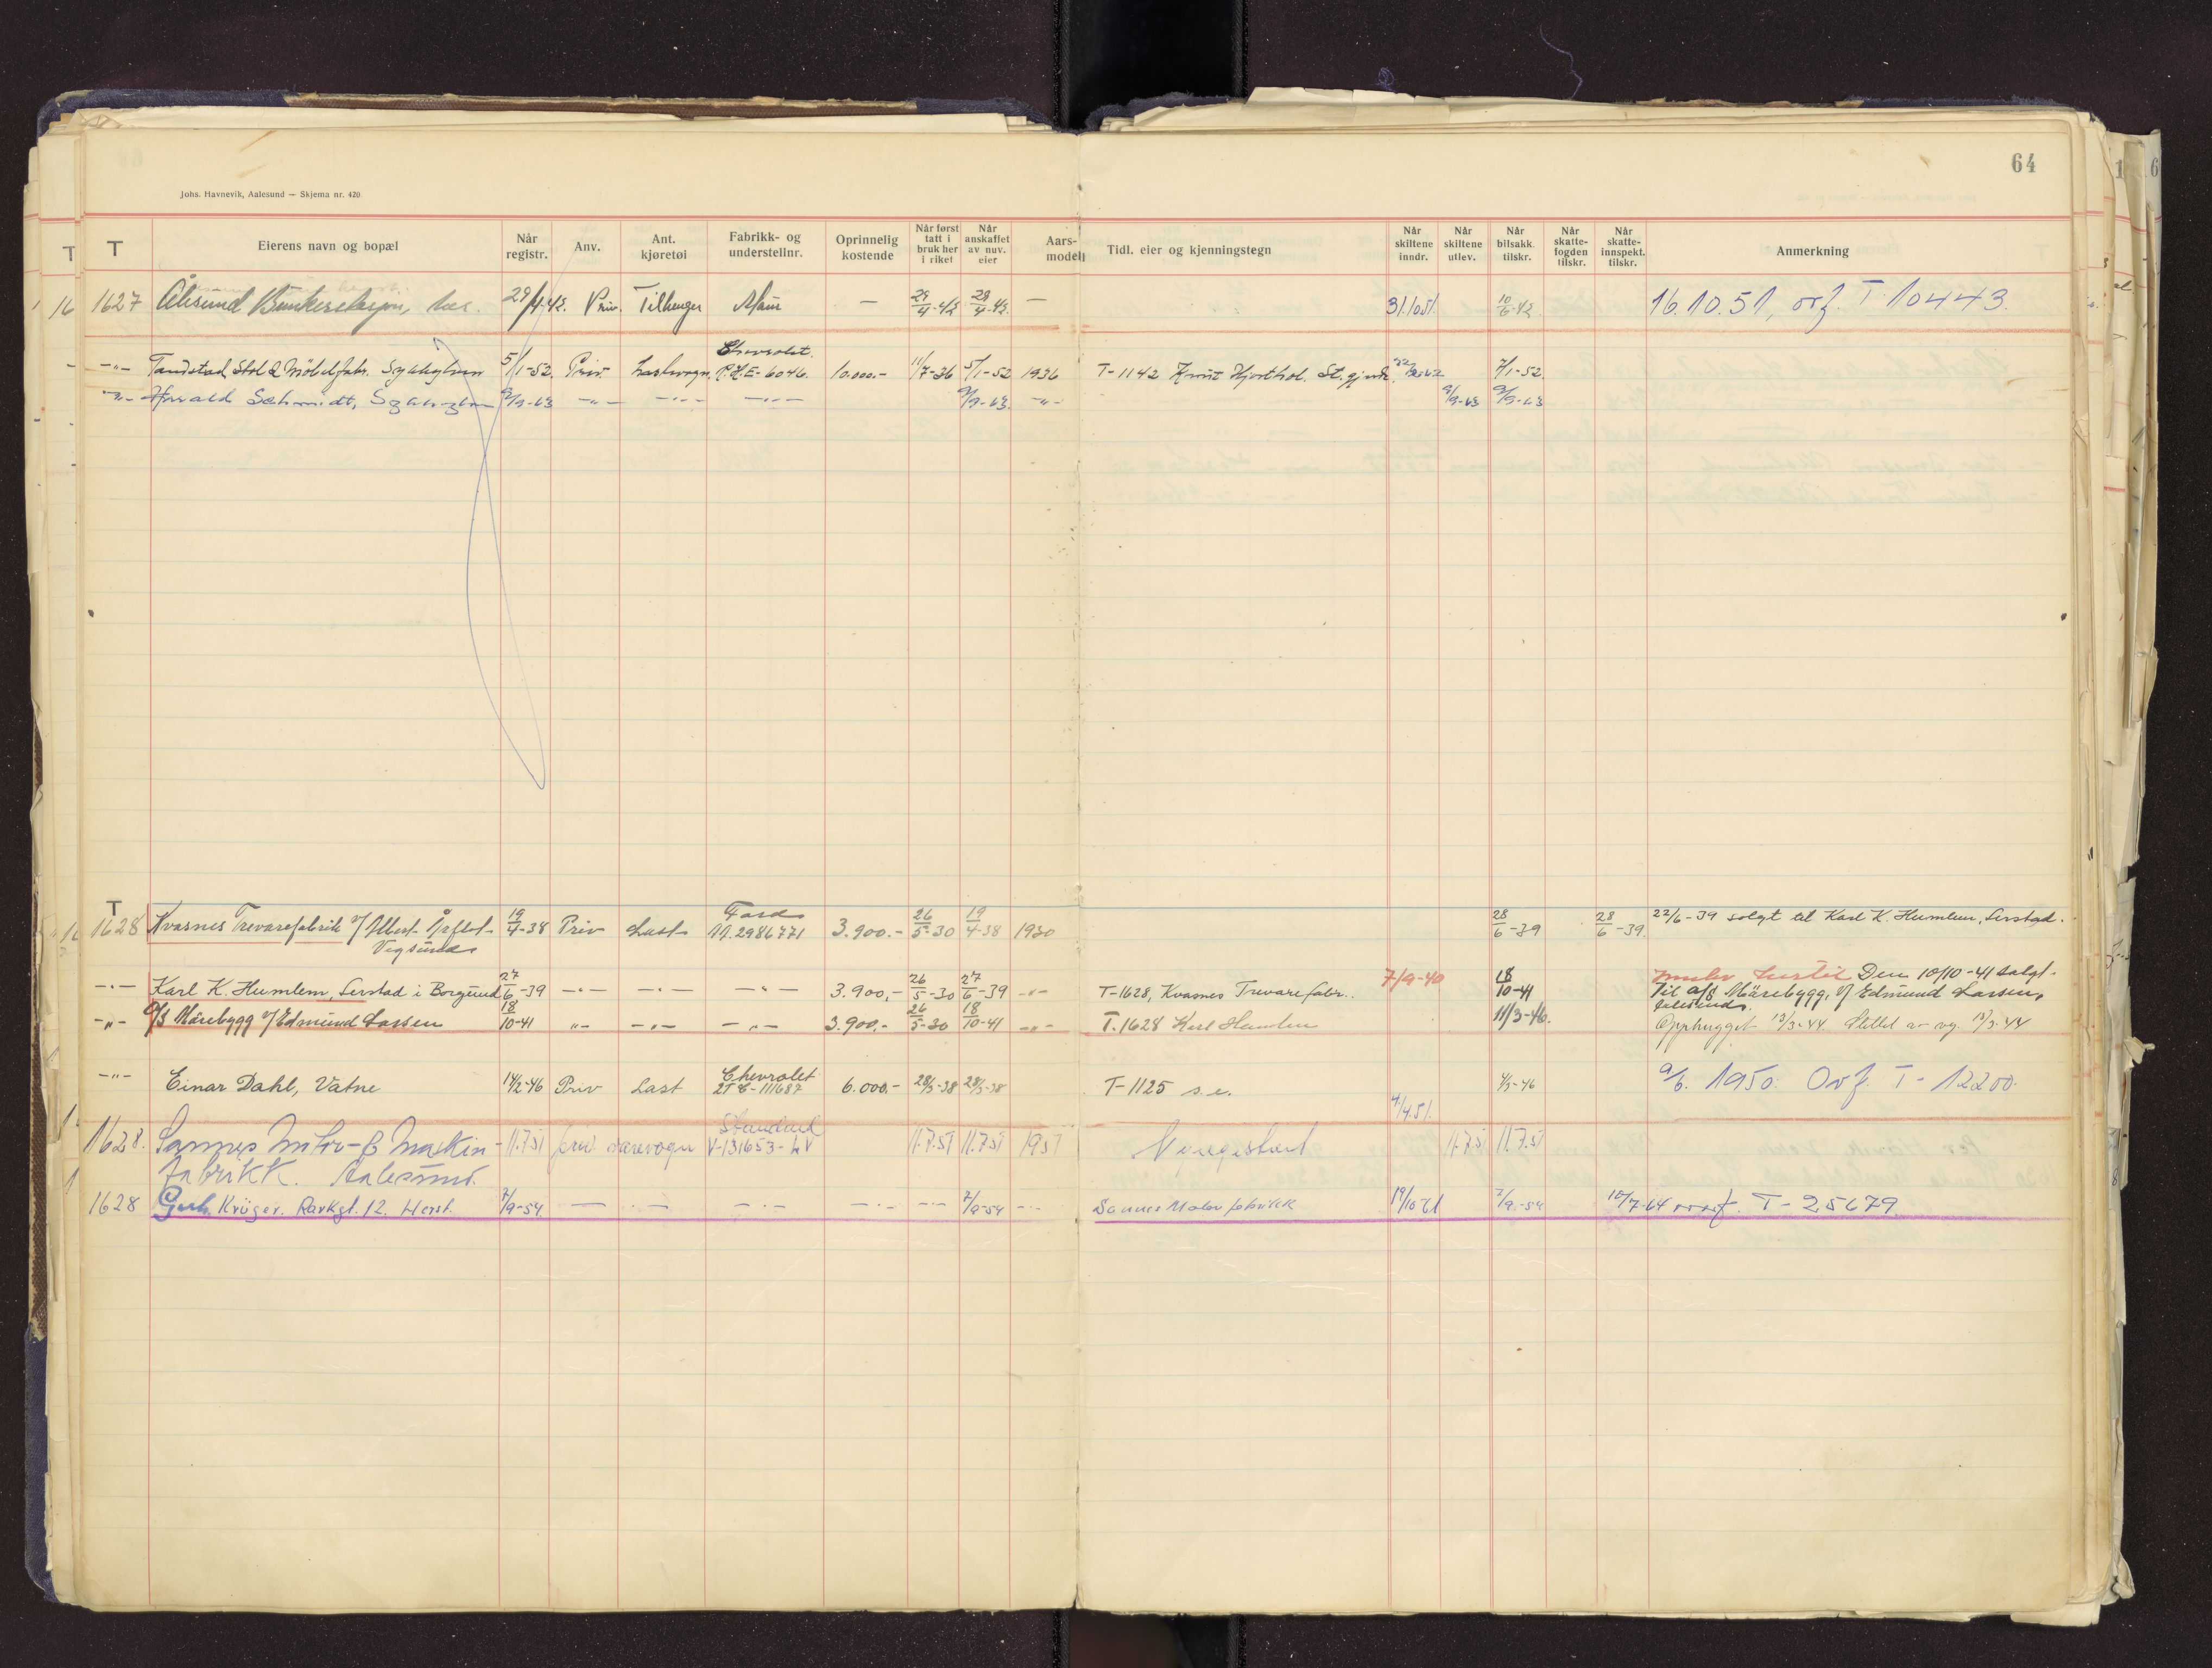 64
Johs. Havnevik, Aalesund — Skjema nr. 420
T Eierens navn og bopæl Når registr. Anv. Ant. kjøretøi Fabrikk- og understellnr. Oprinnelig kostende Når først tatt i bruk her i riket Når anskaffet av nuv. eier Aars-modell Tidl. eier og kjenningstegn Når skiltene inndr. Når skiltene utlev. Når bilsakk. tilskr. Når skatte-fogden tilskr. Når skatte-innspekt. tilskr. Anmerkning
1627 Ålesund 29/4-42. Priv. Tilhenger — 29/4-42 29/4-42. — 31.10.51. 10/6-42 16.10.51, ovf. T 10443.
Chevrolet.
-"- Tandstad Stol & Møbelfabr. Sykkylven 5/1-52. Priv. Lastevogn. P.H.E-6046. 10.000.- 11/7-36 5/1-52 1936 T-1142 Knut Hjorthol. St. 7/1-52.
-"- Harald Schmidt, Sykkylven 9/9-63 -"- -"- -"- 9/9-63. -"- 9/9-63 9/9-63
T
1628 Kvasnes Trevarefabrik v/ Albert 19/4-38 Priv Last Ford 3.900.- 26/5-30 19/4-38 1930 28/6-39 28/6-39. 22/6-39 solgt til Karl K. Humlem, Serstad.
Vegsund AA.2986771
-"- Karl K. Humlem, Serstad i Borgund 27/6-39 -"- -"- -"- 3.900,- 26/5-30 27/6-39 -"- T-1628, Kvasnes Trevarefabr. 7/9-40 18/10-41 Den 10/10-41 solgt
til a/s Mørebygg, v/ Edmund Lassen,
Ålesund.
-"- A/S Mørebygg v/ Edmund Lassen 18/10-41 -"- -"- -"- 3.900.- 26/5-30 18/10-41 -"- T.1628 Karl Humlem 11/3-46. Opphugget 13/3-44. Slettet av reg. 13/3-44
-"- Einar Dahl, Vatne 14/2-46 Priv Last Chevrolet 6.000.- 28/3-38 28/3-38 T-1125 s.e. 4/4.51. 4/3-46 9/6. 1950. Ovf. T-12200.
2T6-111687
Standard
1628. Sannes Motor- & Maskin- 11.7.51 priv. varevogn V-131653-LV 11.7.51 11.7.51 1951 Nyregistrert 11.7.51 11.7.51
fabrikk. Aalesund.
1628 Gerh. Krüger. Parkgt. 12. Herst. 7/9-54. — -"- -"- -"- -"- 7/9-54 -"- Sannes Motorfabrikk 19/10 61 7/9-54 10/7-64 ovf. T-25679